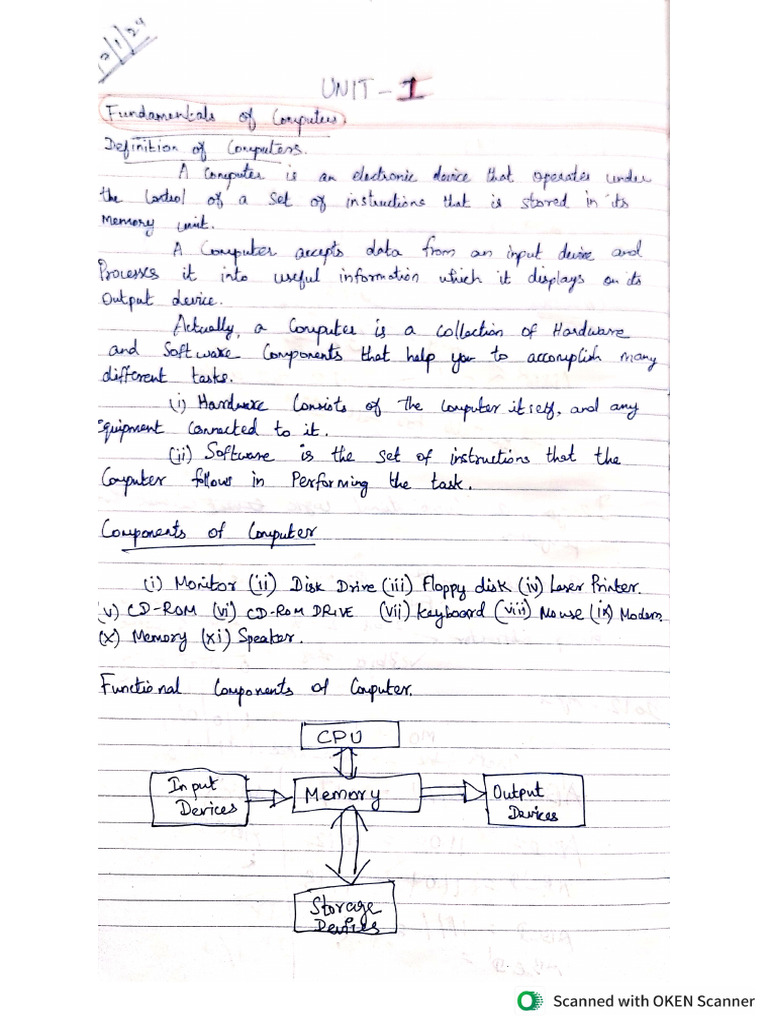 12/1/24
UNIT - 1
Fundamentals of Computers
Definition of Computers.
A Computer is an electronic device that operates under
the Control of a set of instructions that is stored in its
Memory unit.
A Computer accepts data from an input device and
Processes it into useful information which it displays on its
Output device.
Actually, a Computer is a collection of Hardware
and Software Components that help you to accomplish many
different tasks.
(i) Hardware Consists of the Computer itself, and any
equipment Connected to it.
(ii) Software is the set of instructions that the
Computer follows in Performing the task.
Components of Computer
(i) Monitor (ii) Disk Drive (iii) Floppy disk (iv) Laser Printer.
(v) CD-ROM (vi) CD-ROM DRIVE (vii) Keyboard (viii) Mouse (ix) Modem
(x) Memory (xi) Speaker.
Functional Components of Computer.
CPU
Input
Devices
Memory
Output
Devices
Storage
Devices
Scanned with OKEN Scanner